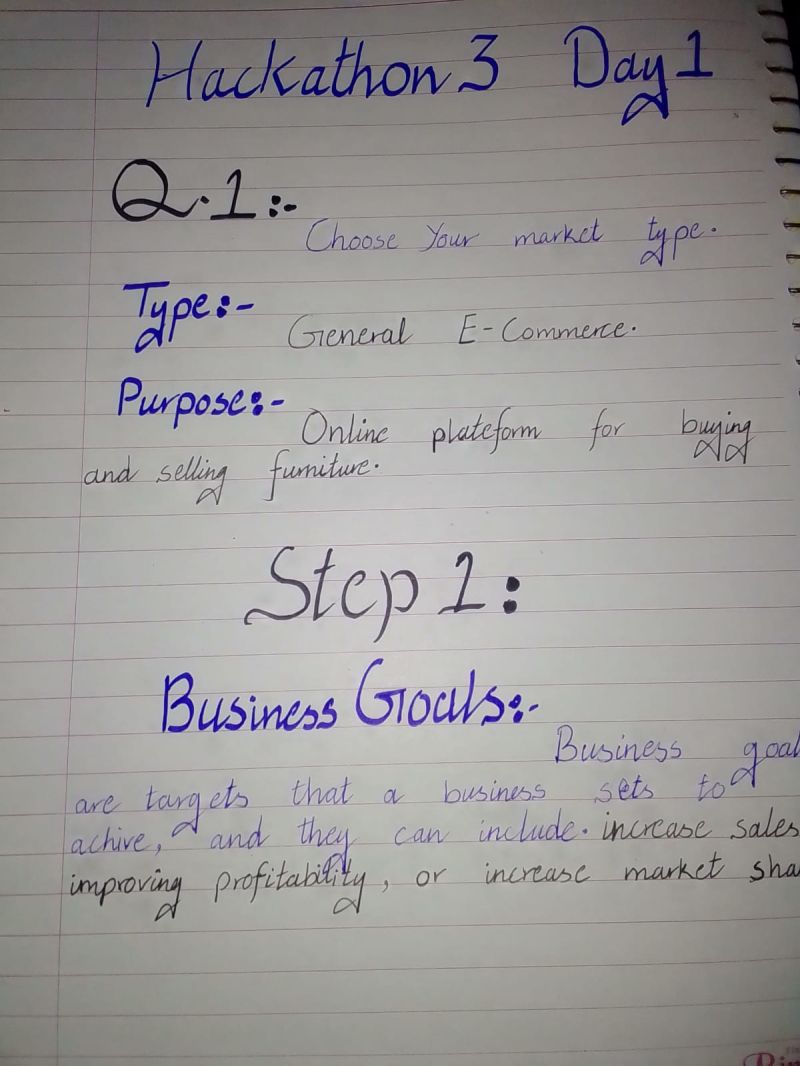 Hackathon 3 Day 1
Q.1:-
Choose Your market type.
Type:-
General E-Commerce.
Purpose:-
Online plateform for buying
and selling furniture.
Step 1:
Business Goals:-
Business goal
are targets that a business sets to
achive, and they can include. increase sales
improving profitability, or increase market sha